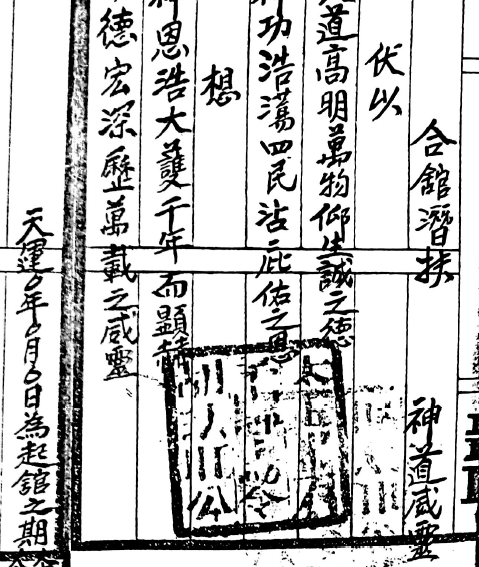 合舘潛扶
神道威靈
伏以
道高明萬物仰生誠之德
神功浩蕩四民沾庇佑之恩
想
神恩浩大護千年而顯
德宏深歷萬載之威靈
天運年月日為起舘之期